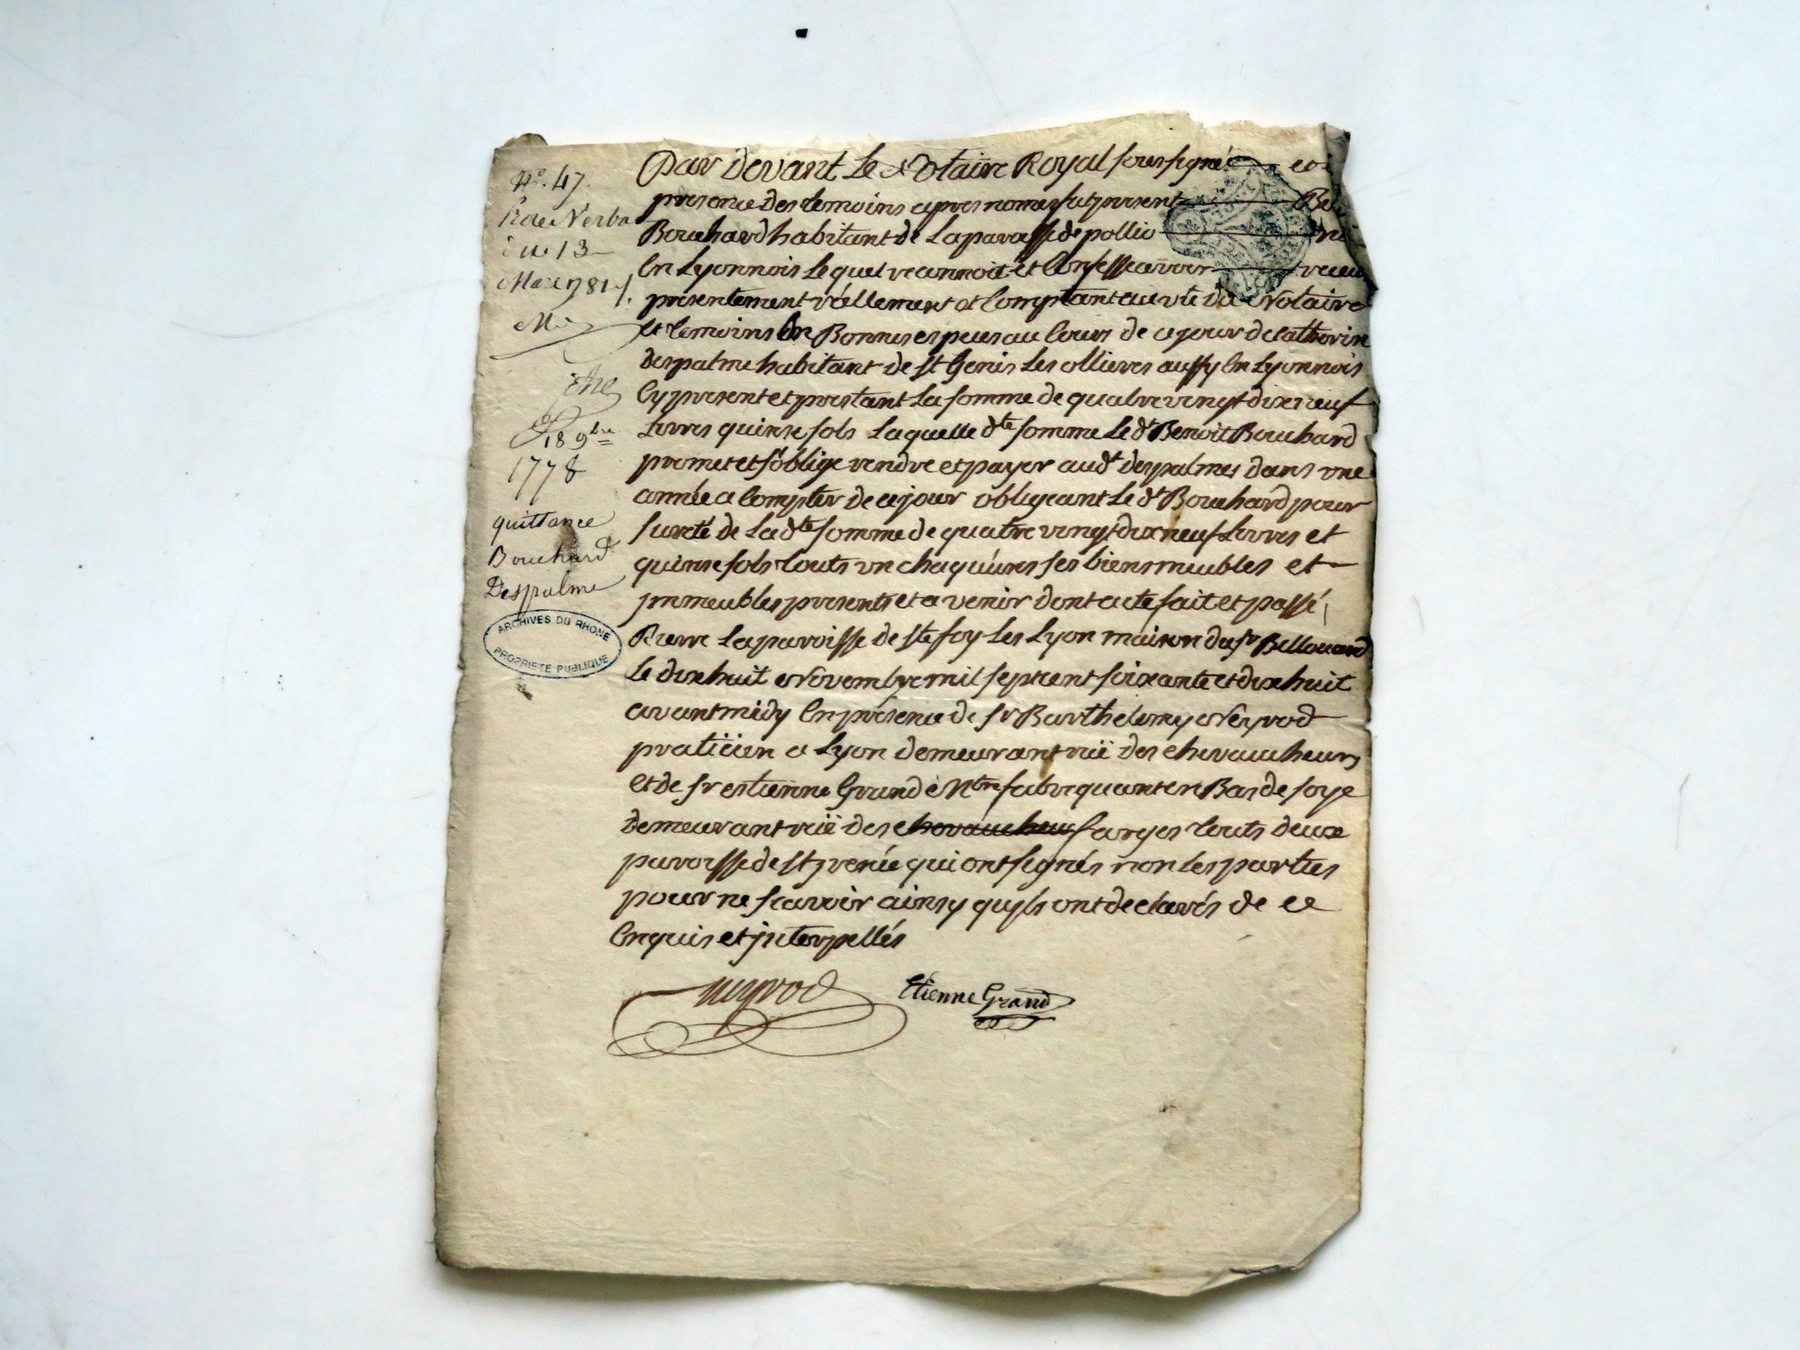 N.º 47.
Verba
du 13
Mars 1781
18 9bre
1778
quittance
Bouchard
Despalme
ARCHIVES DU RHONE
PROPRIETE PUBLIQUE
Par devant Le Notaire Royal soussigné
presence des temoins apres nomes fut present
Bouchard habitant de La paroisse de pollio
En Lyonnois Lequel reconnoit et Confesse avoir receu
presentement réellement et Comptant au vü du Notaire
et temoins En Bonnes especes au Cours de ce jour de Catherin
despalme habitant de St Genis Les ollieres aussy En Lyonnois
Cy present et prestant La somme de quatre vingt dix neuf
Livres quinse sols Laquelle dte somme Le dt Benoit Bouchard
promet et s'oblige rendre et payer audt despalmes dans une
année a Compter de ce jour obligeant Le dt Bouchard pour
sureté de La dte somme de quatre vingt dix neuf Livres et
quinse sols touts un chaqu'uns ses biens meubles et
jmmeubles presents et a venir dont acte fait et passé
Riere La paroisse de Ste foy Les Lyon maison du sr Bellouard
Le dix huit Novembre mil sept cent soixante et dix huit
avant midy En présence de sr Barthelemy Neyrod
praticien a Lyon demeurant rüe des chevaucheurs
et de sr estienne Grand Mtre fabrequant en Bas de soye
demeurant rüe des chevaucheur farges touts deux
paroisse de St jrenée qui ont signés non Les parties
pour ne scavoir ainsy quils ont declarés de ce
Enquis et jnterpellés
neyrod
Etienne Grand